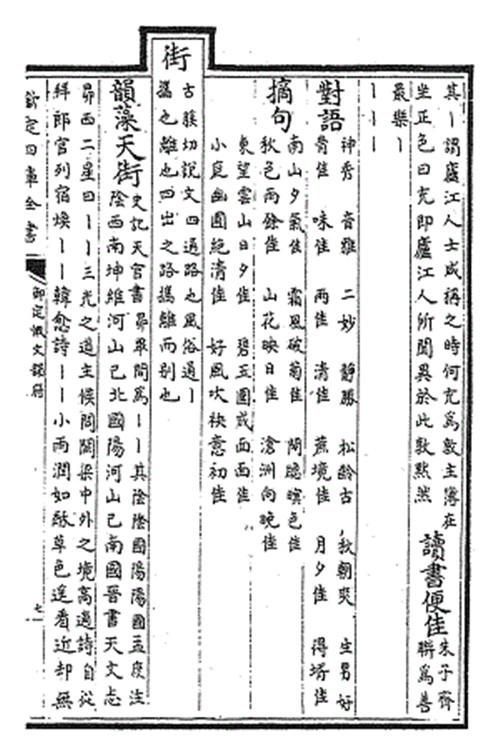 其丨謂廬江人士咸稱之時何充為敦主簿在
坐正色曰充即廬江人所聞異於此敦黙然
讀書便佳
朱子齊
聨為善
最樂丨
丨丨丨
對語
神秀 音雅 二妙 靜勝 松齡古 秋朝爽 生男好
育佳 味佳 雨佳 清佳 蔗境佳 月夕佳 得壻佳
摘句
南山夕氣佳 霜風破菊佳 閒聴暝色佳
秋色雨餘佳 山花映日佳 滄洲向晚佳
東望雲山日夕佳 碧玉圍成面面佳
小庭幽圃絶清佳 好風吹袂意初佳
街
古膎切說文四通路也風俗通丨
攜也離也四出之路攜離而别也
韻藻
天街
史記天官書昴畢間為丨丨其陰陰國陽陽國孟康注
陰西南坤維河山已北國陽河山已南國晉書天文志
昴西二星曰丨丨三光之道主候關梁中外之境高適詩自從
拜郎官列宿煥丨丨韓愈詩丨丨小雨潤如酥草色遥看近却無
欽定四庫全書
御定佩文韻府
七